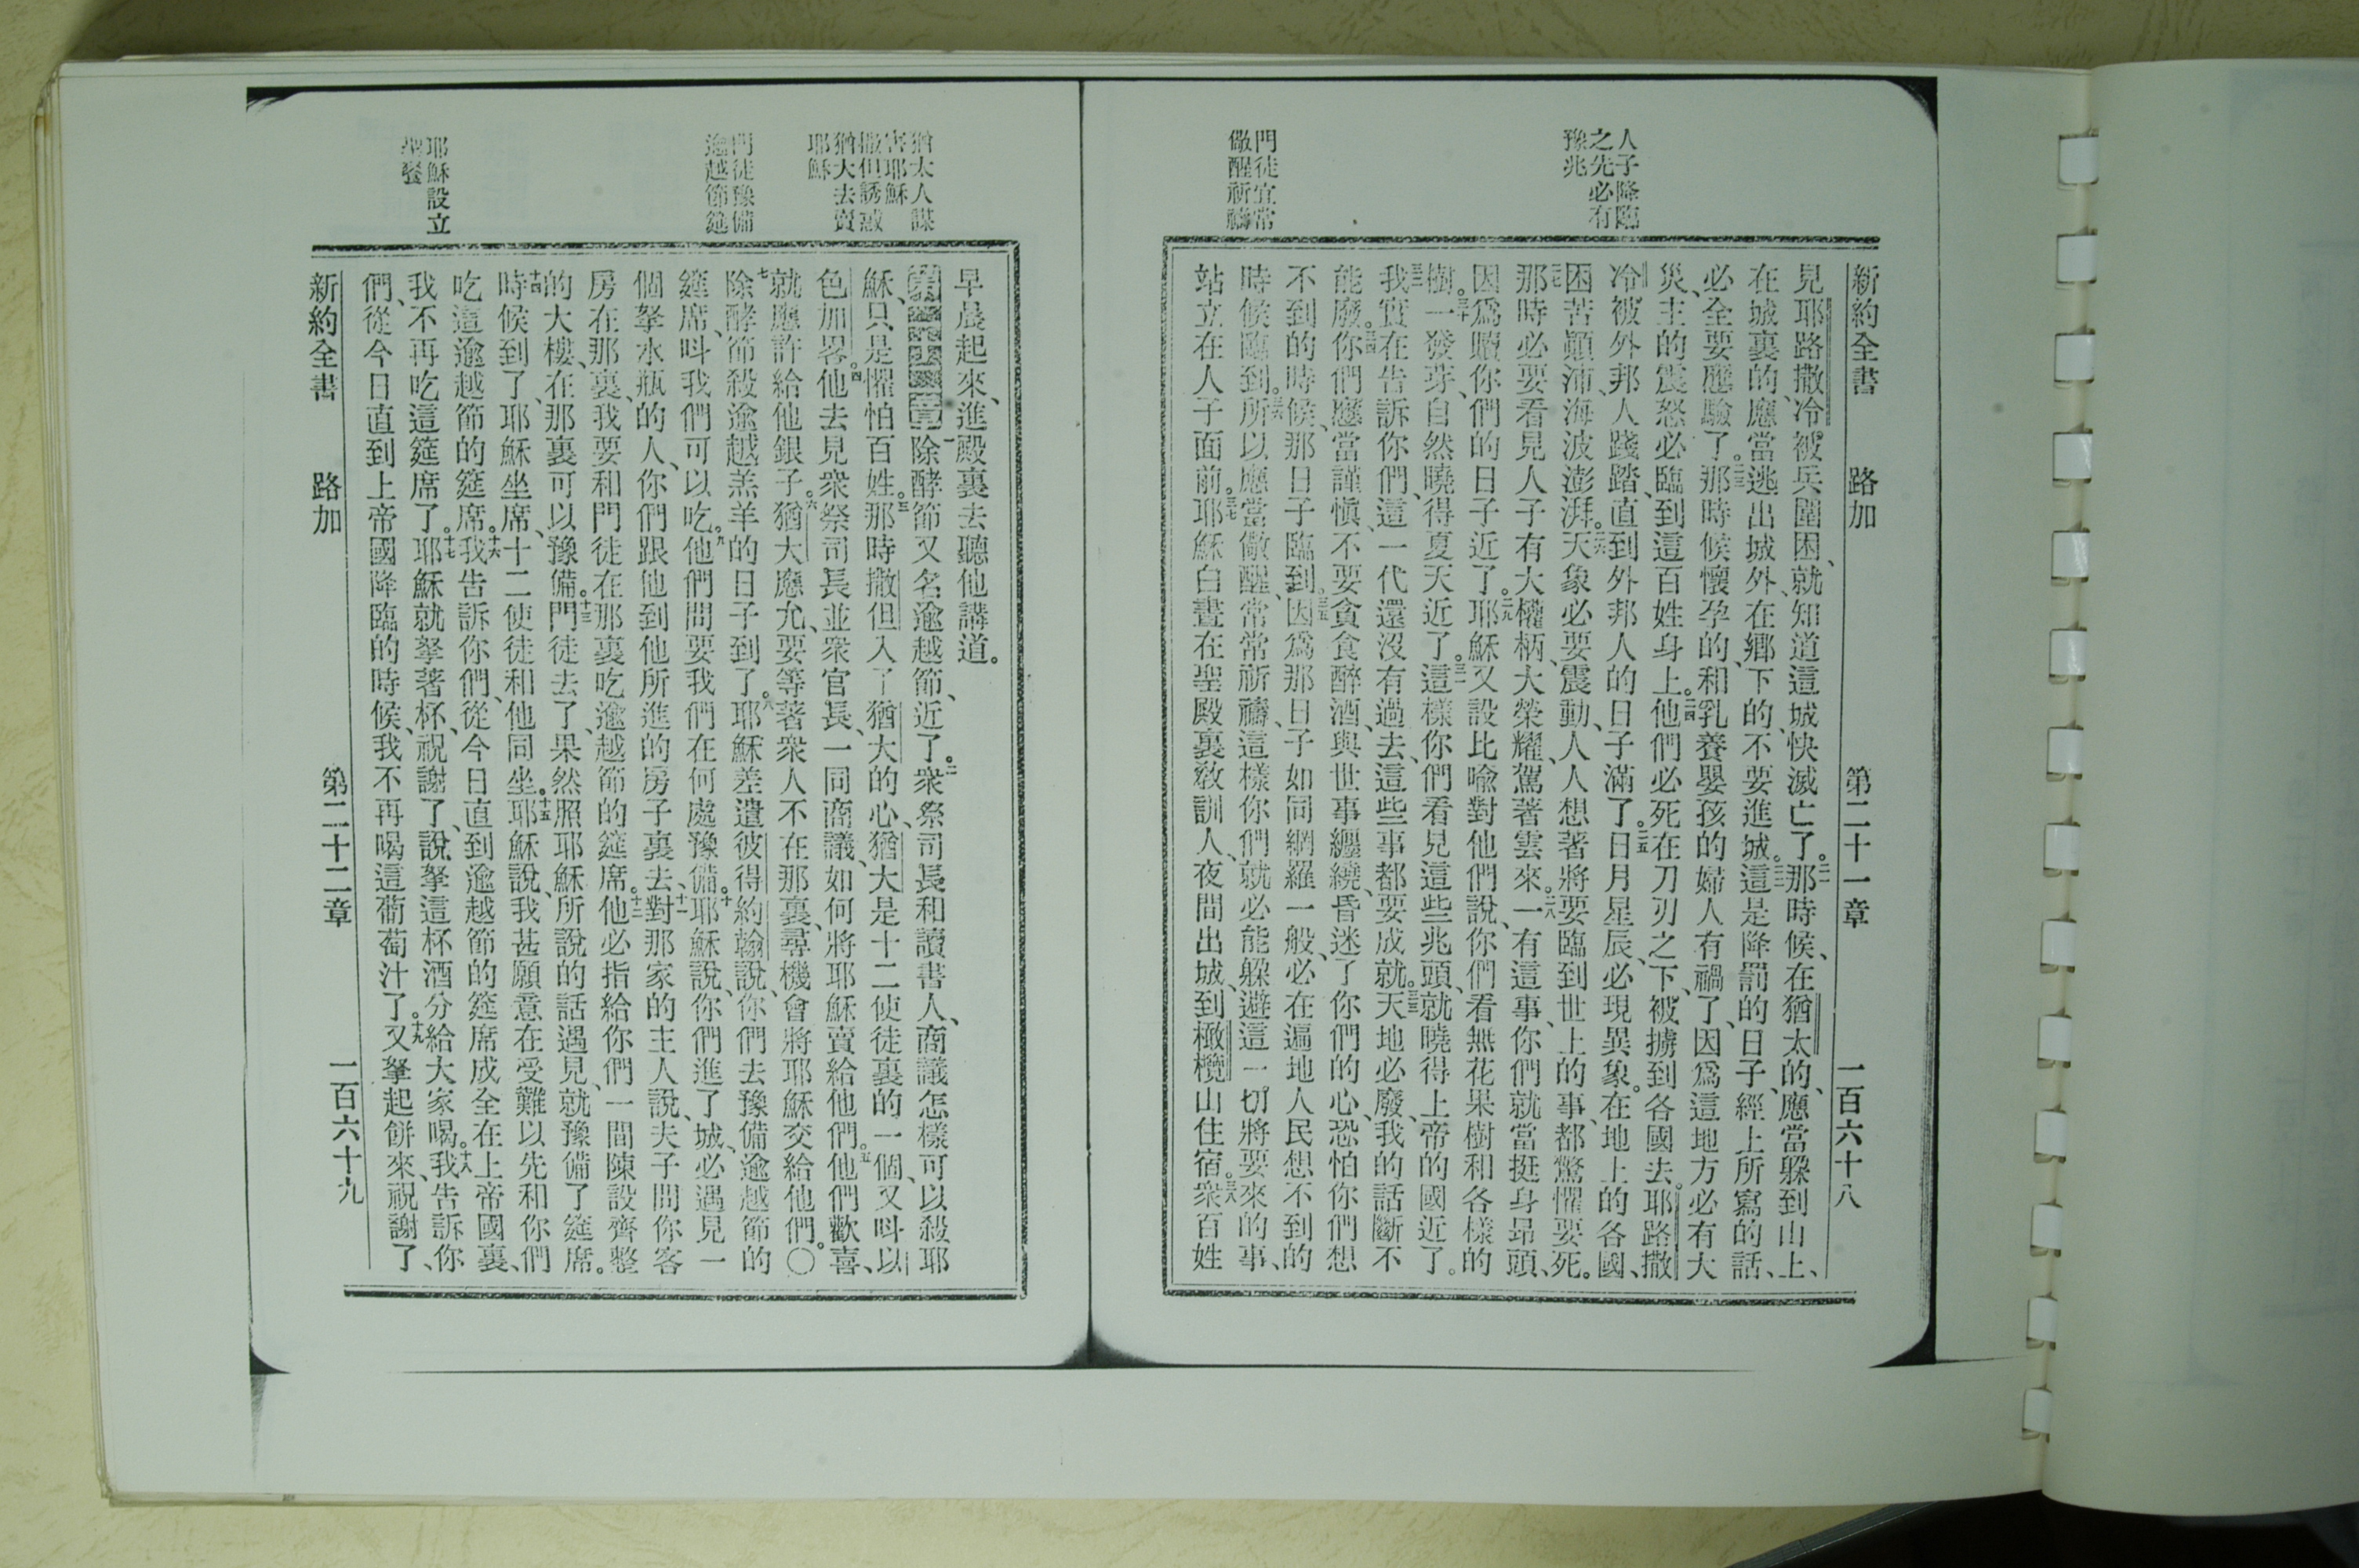 人子降臨
之先必有
豫兆
門徒宜常
儆醒祈禱
新約全書 路加 第二十一章 一百六十八
見耶路撒冷被兵圍困、就知道這城快滅亡了。二一那時候、在猶太的、應當躱到山上、
在城裏的、應當逃出城外、在鄉下的、不要進城。二二這是降罰的日子、經上所寫的話、
必全要應驗了。二三那時候懷孕的、和乳養嬰孩的婦人有禍了、因爲這地方必有大
災、主的震怒必臨到這百姓身上。二四他們必死在刀刃之下、被擄到各國去。耶路撒
冷被外邦人踐踏、直到外邦人的日子滿了。二五日月星辰、必現異象。在地上的各國、
困苦顚沛、海波澎湃。二六天象必要震動、人人想著將要臨到世上的事、都驚懼要死。
二七那時必要看見人子有大權柄、大榮耀、駕著雲來。二八一有這事、你們就當挺身昻頭、
因爲贖你們的日子近了。二九耶穌又設比喩對他們說、你們看無花果樹和各樣的
樹。三十一發芽、自然曉得夏天近了。三一這樣你們看見這些兆頭、就曉得上帝的國近了。
三二我實在吿訴你們、這一代還沒有過去、這些事都要成就。三三天地必廢、我的話斷不
能廢。三四你們應當謹愼、不要貪食醉酒、與世事纏繞、昏迷了你們的心、恐怕你們想
不到的時候、那日子臨到。三五因爲那日子如同網羅一般、必在遍地人民想不到的
時候臨到。三六所以應當儆醒、常常祈禱、這樣你們就必能躱避這一切將要來的事、
站立在人子面前。三七耶穌白晝在聖殿裏敎訓人、夜間出城、到橄欖山住宿。三八衆百姓
猶太人謀
害耶穌
撒但誘惑
猶大去賣
耶穌
門徒豫備
逾越節筵
耶穌設立
聖餐
早晨起來、進殿裏去聽他講道。
第二十二章一除酵節又名逾越節、近了。二衆祭司長和讀書人、商議怎樣可以殺耶
穌、只是懼怕百姓。三那時撒但入了猶大的心、猶大是十二使徒裏的一個、又呌以
色加畧。四他去見衆祭司長、並衆官長、一同商議、如何將耶穌賣給他們。五他們歡喜、
就應許給他銀子。六猶大應允、要等著衆人不在那裏、尋機會將耶穌交給他們。〇
七除酵節殺逾越羔羊的日子到了。八耶穌差遣彼得約翰說、你們去豫備逾越節的
筵席、呌我們可以吃。九他們問要我們在何處豫備。十耶穌說、你們進了城、必遇見一
個拏水瓶的人、你們跟他到他所進的房子裏去、十一對那家的主人說、夫子問你客
房在那裏、我要和門徒在那裏吃逾越節的筵席。十二他必指給你們一間陳設齊整
的大樓、在那裏可以豫備。十三門徒去了、果然照耶穌所說的話遇見、就豫備了筵席。
十四時候到了、耶穌坐席、十二使徒和他同坐。十五耶穌說、我甚願意在受難以先和你們
吃這逾越節的筵席。十六我吿訴你們、從今日直到逾越節的筵席成全在上帝國裏、
我不再吃這筵席了。十七耶穌就拏著杯、祝謝了、說、拏這杯酒分給大家喝。十八我吿訴你
們、從今日直到上帝國降臨的時候、我不再喝這葡萄汁了。十九又拏起餅來、祝謝了、
新約全書 路加 第二十二章 一百六十九